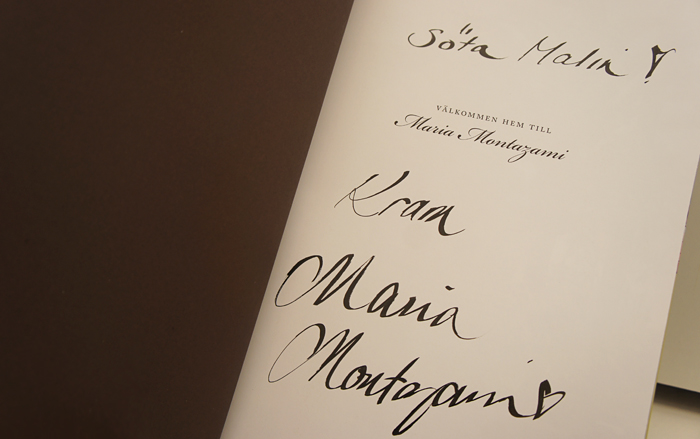 Söta Malin !
VÄLKOMMEN HEM TILL
Maria Montazami
Kram
Maria
Montazami